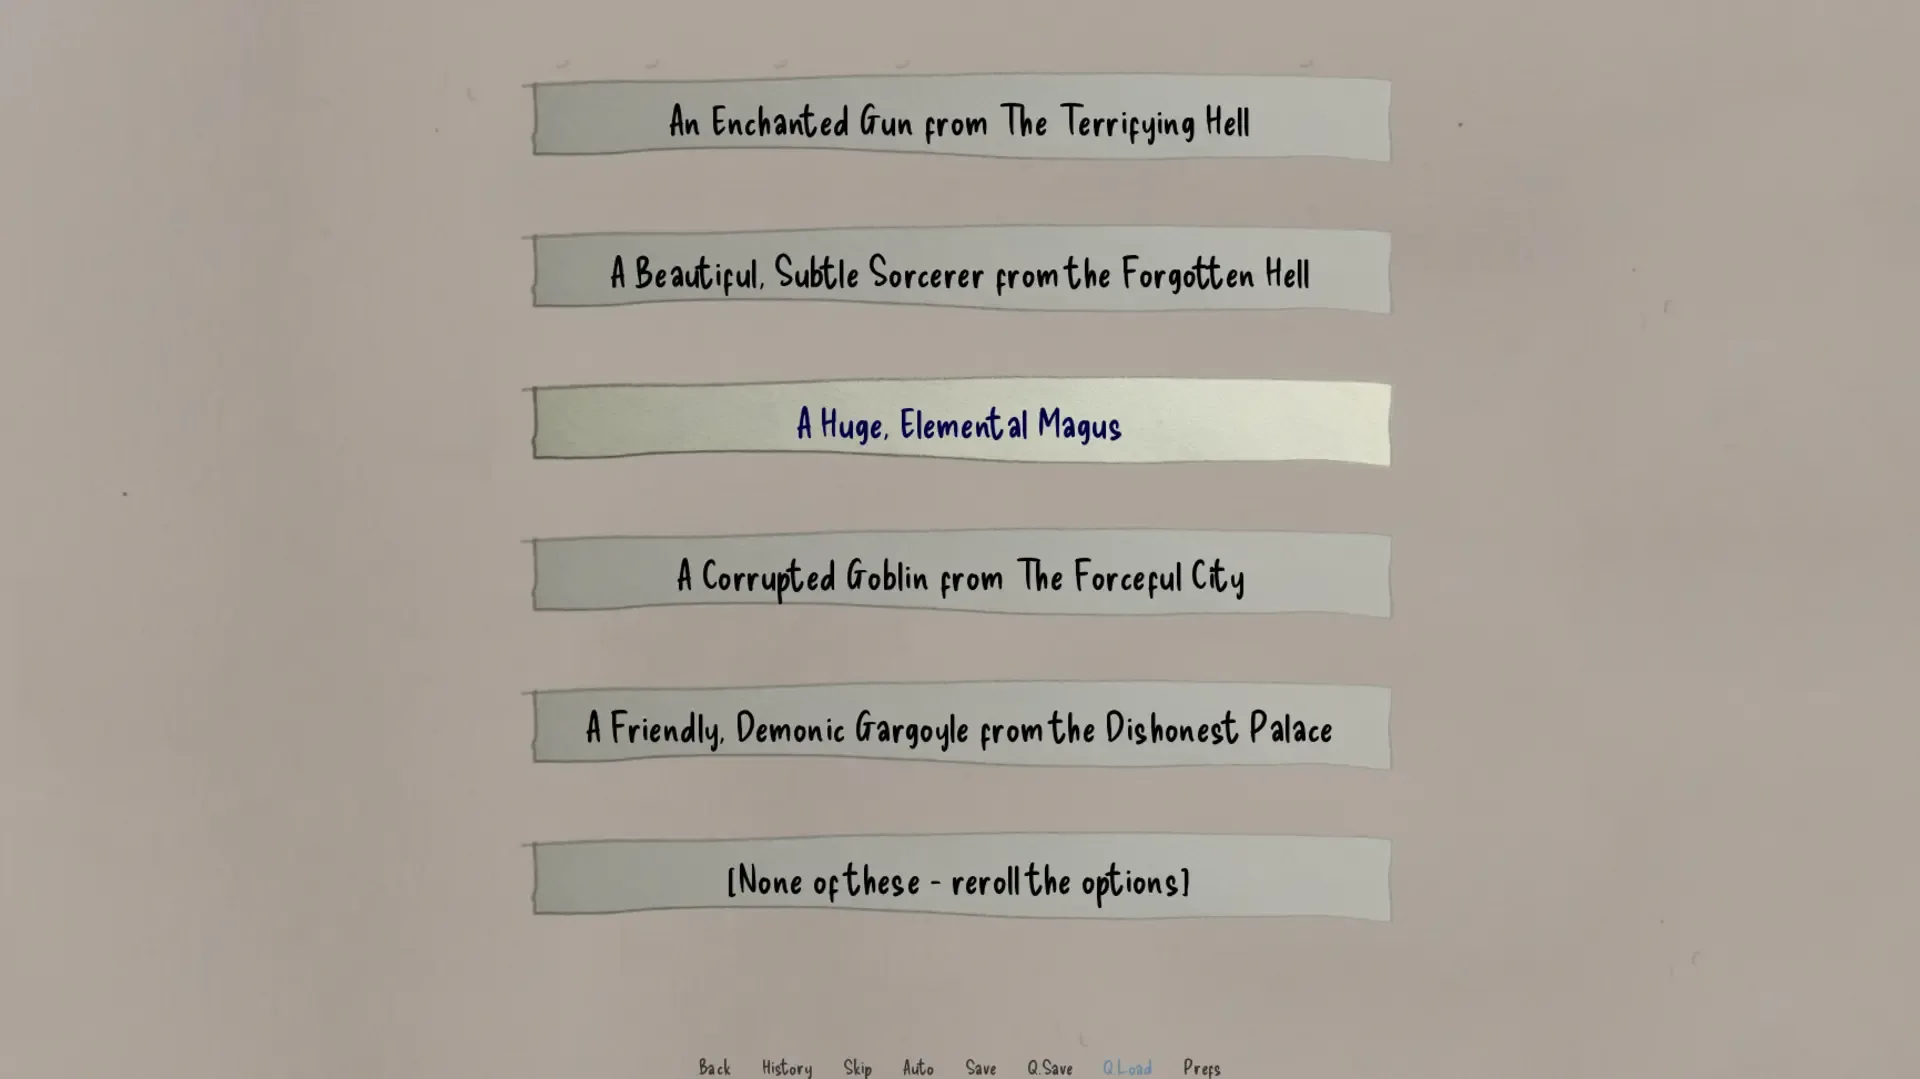 An Enchanted Gun from The Terrifying Hell
A Beautiful, Subtle Sorcerer from the Forgotten Hell
A Huge, Elemental Magus
A Corrupted Goblin from The Forceful City
A Friendly, Demonic Gargoyle from the Dishonest Palace
[None of these - reroll the options]
Back History Skip Auto Save Q.Save Q.Load Prefs